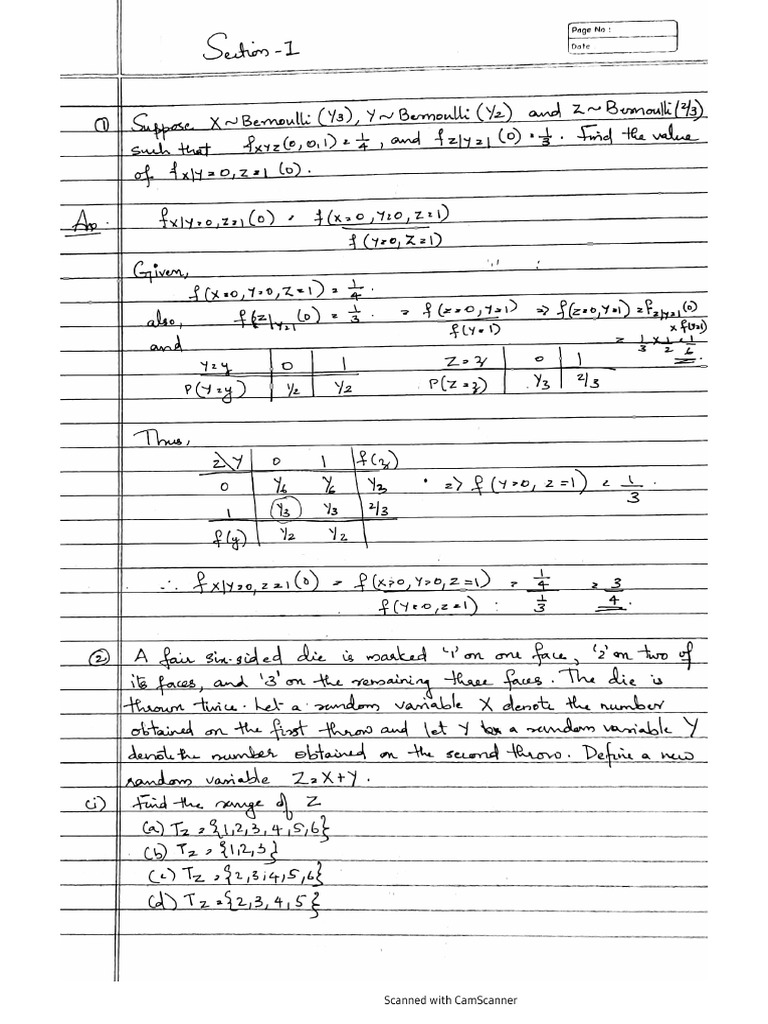 Page No :
Date
Section-I
① Suppose X ~ Bernoulli (1/3), Y ~ Bernoulli (1/2) and Z ~ Bernoulli (2/3)
such that fXYZ(0,0,1) = 1/4, and fZ|Y=1(0) = 1/3. Find the value
of fX|Y=0,Z=1(0).
Ans. fX|Y=0,Z=1(0) = f(X=0,Y=0,Z=1) / f(Y=0,Z=1)
Given,
f(X=0,Y=0,Z=1) = 1/4.
also, f(Z|Y=1(0) = 1/3. = f(Z=0,Y=1) / f(Y=1) => f(Z=0,Y=1) = fZ|Y=1(0)
× f(Y=1)
and = 1/3 × 1/2 = 1/6
Y=y 0 1 Z=z 0 1
P(Y=y) 1/2 1/2 P(Z=z) 1/3 2/3
Thus,
Z\Y 0 1 f(z)
0 1/6 1/6 1/3 • => f(Y=0, Z=1) = 1/3.
1 1/3 1/3 2/3
f(y) 1/2 1/2
∴ fX|Y=0,Z=1(0) = f(X=0,Y=0,Z=1) / f(Y=0,Z=1) = 1/4 / 1/3 = 3/4.
② A fair six-sided die is marked '1' on one face, '2' on two of
its faces, and '3' on the remaining three faces. The die is
thrown twice. Let a random variable X denote the number
obtained on the first throw and let Y be a random variable Y
denote the number obtained on the second throw. Define a new
random variable Z=X+Y.
(i) Find the range of Z
(a) TZ = {1,2,3,4,5,6}
(b) TZ = {1,2,3}
(c) TZ = {2,3,4,5,6}
(d) TZ = {2,3,4,5}
Scanned with CamScanner